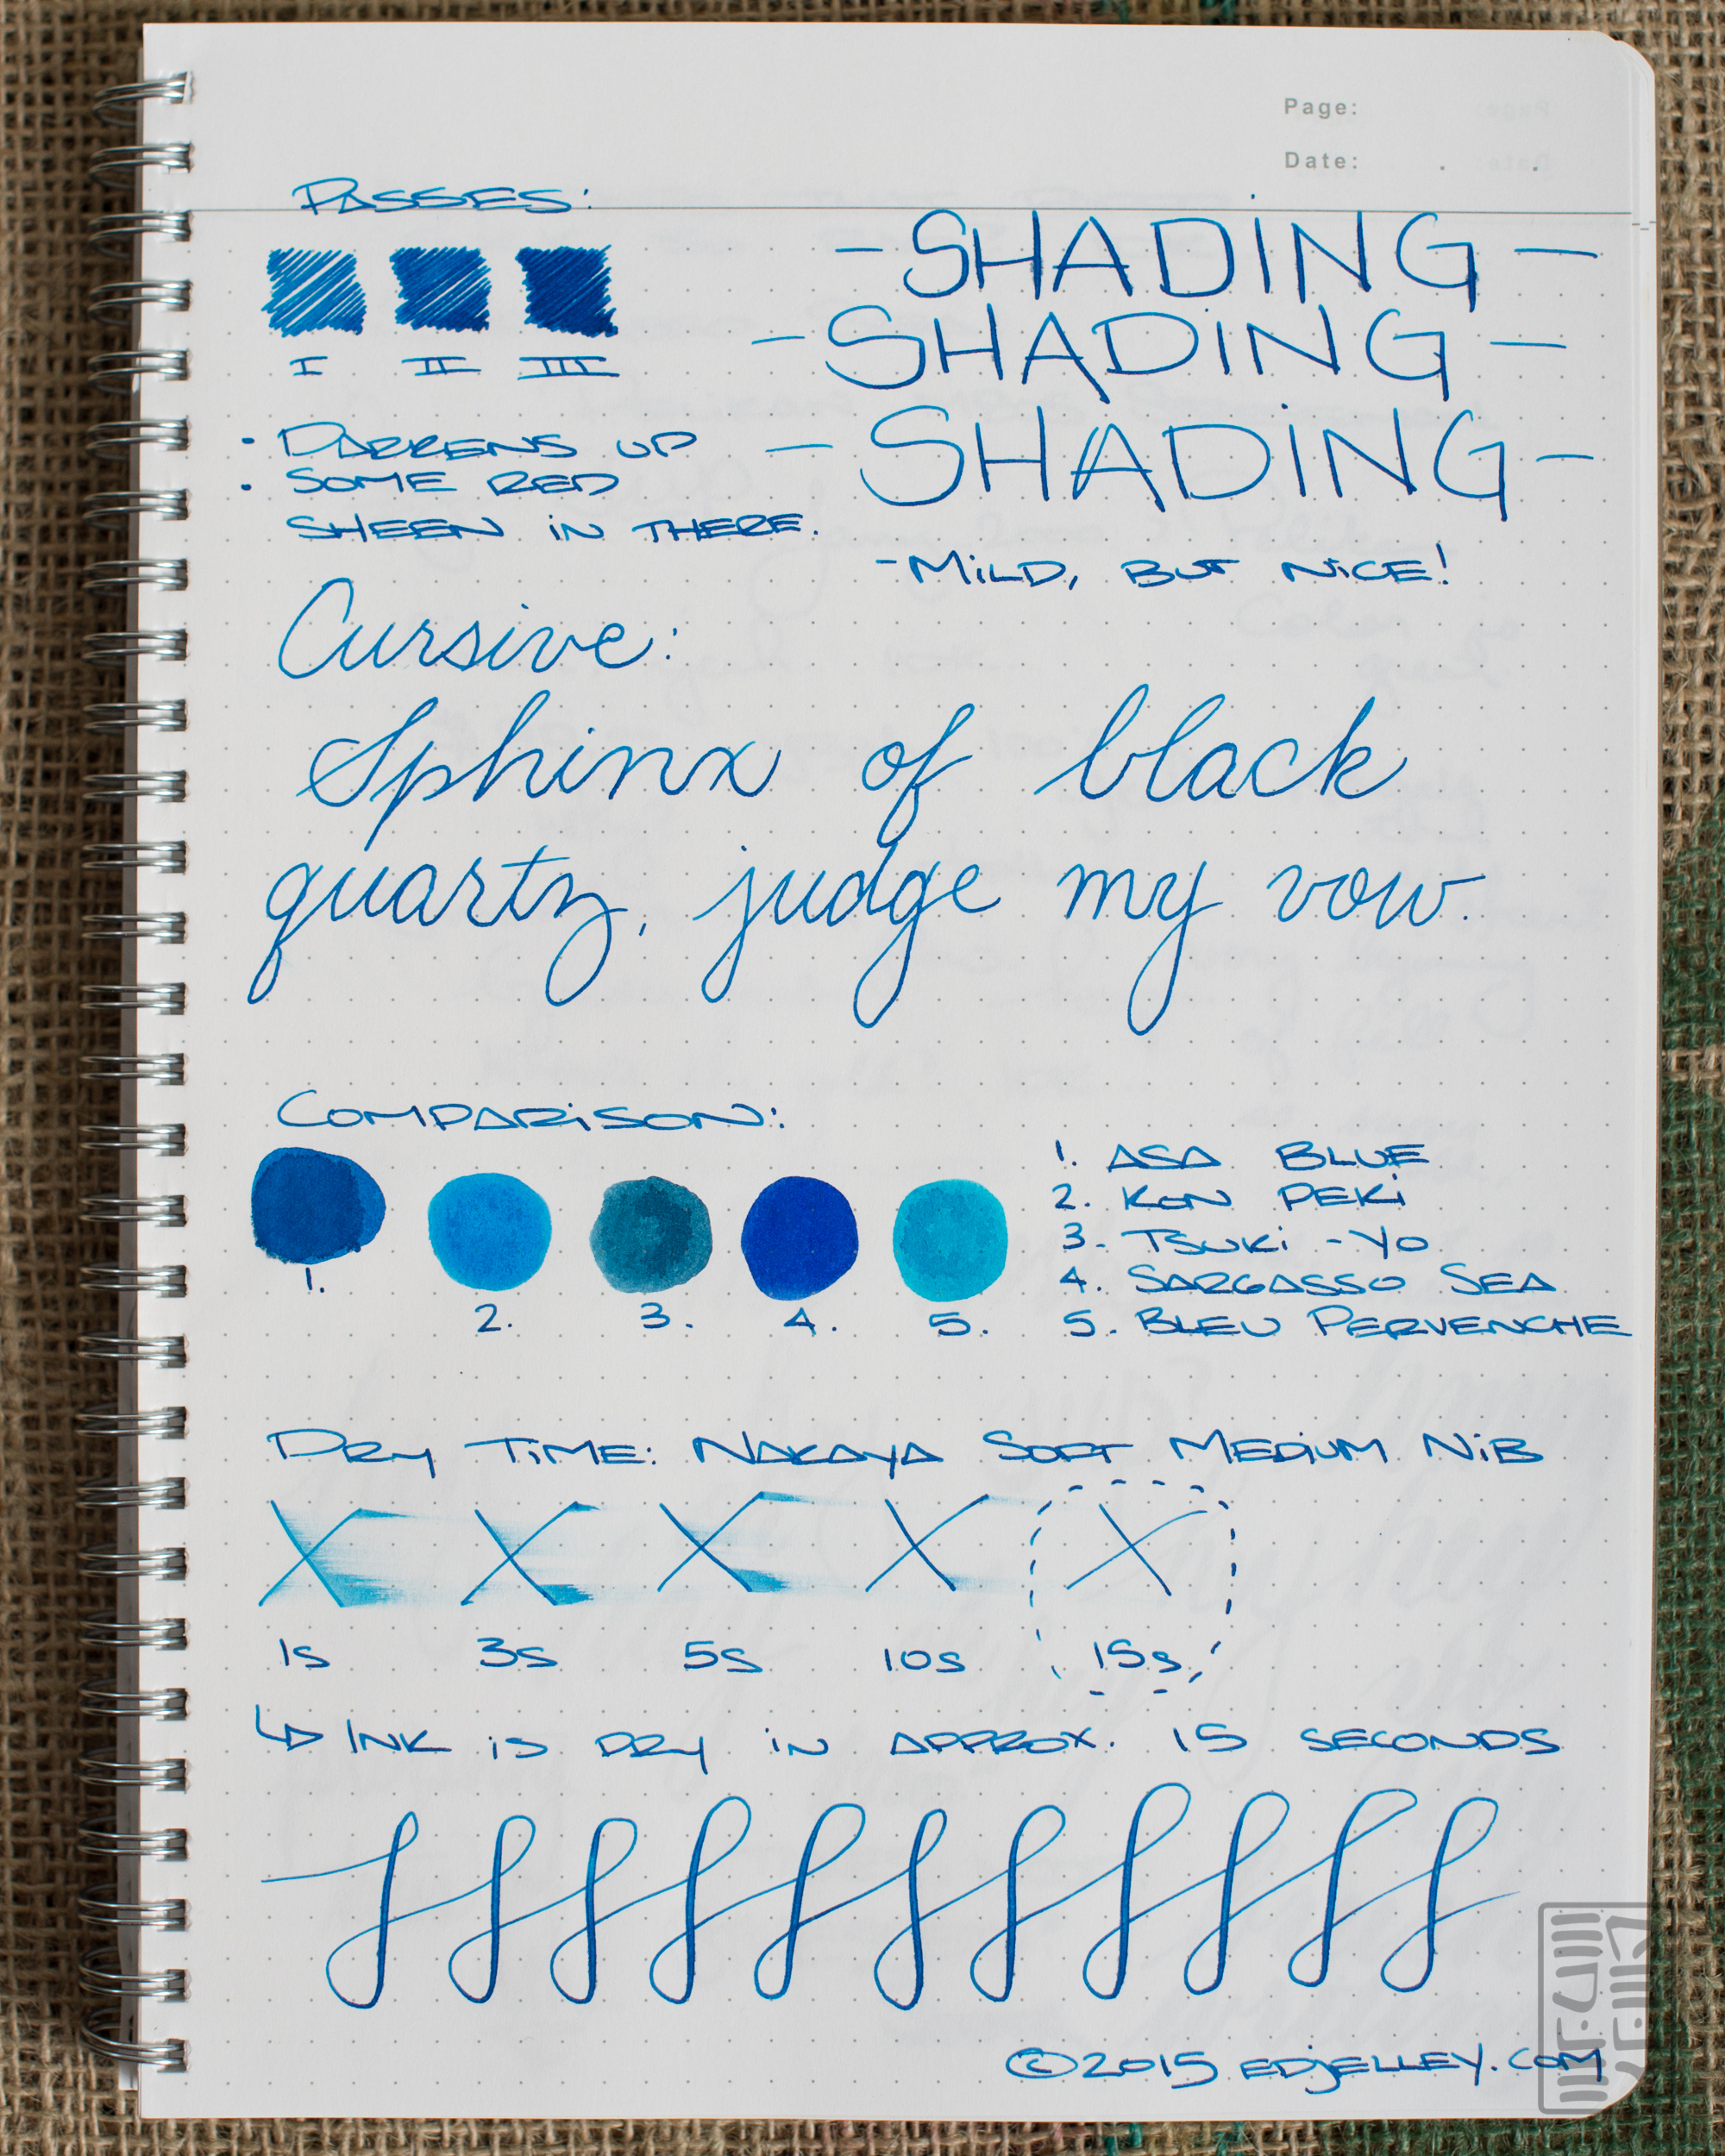 Page:
Date: . .
PASSES:
I II III
• DARKENS UP
• SOME RED
SHEEN IN THERE.
- SHADING -
- SHADING -
- SHADING -
- MILD, BUT NICE!
Cursive:
Sphinx of black
quartz, judge my vow.
COMPARISON:
1. 2. 3. 4. 5.
1. ASA BLUE
2. KON PEKI
3. TSUKI-YO
4. SARGASSO SEA
5. BLEU PERVENCHE
DRY TIME: NAKAYA SOFT MEDIUM NIB
X X X X X
1s 3s 5s 10s 15s
↳ INK IS DRY IN APPROX. 15 SECONDS
©2015 EDJELLEY.COM